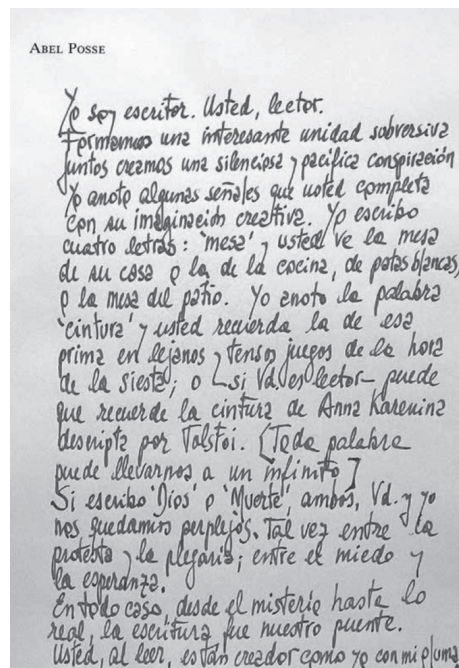 ABEL POSSE
Yo soy escritor. Usted, lector.
Formamos una interesante unidad subversiva
Juntos creamos una silenciosa y pacífica conspiración
Yo anoto algunas señales que usted completa
con su imaginación creativa. Yo escribo
cuatro letras: 'mesa' y usted ve la mesa
de su casa o la de la cocina, de patas blancas,
o la mesa del patio. Yo anoto la palabra
'cintura' y usted recuerda la de esa
prima en lejanos y tensos juegos de la hora
de la siesta; o –si Vd. es lector– puede
que recuerde la cintura de Anna Karenina
descripta por Tolstoi. (Toda palabra
puede llevarnos a un infinito]
Si escribo 'Dios' o 'Muerte', ambos, Vd. y yo
nos quedamos perplejos. Tal vez entre la
protesta y la plegaria; entre el miedo y
la esperanza.
En todo caso, desde el misterio hasta lo
real, la escritura fue nuestro puente.
Usted, al leer, es tan creador como yo con mi pluma